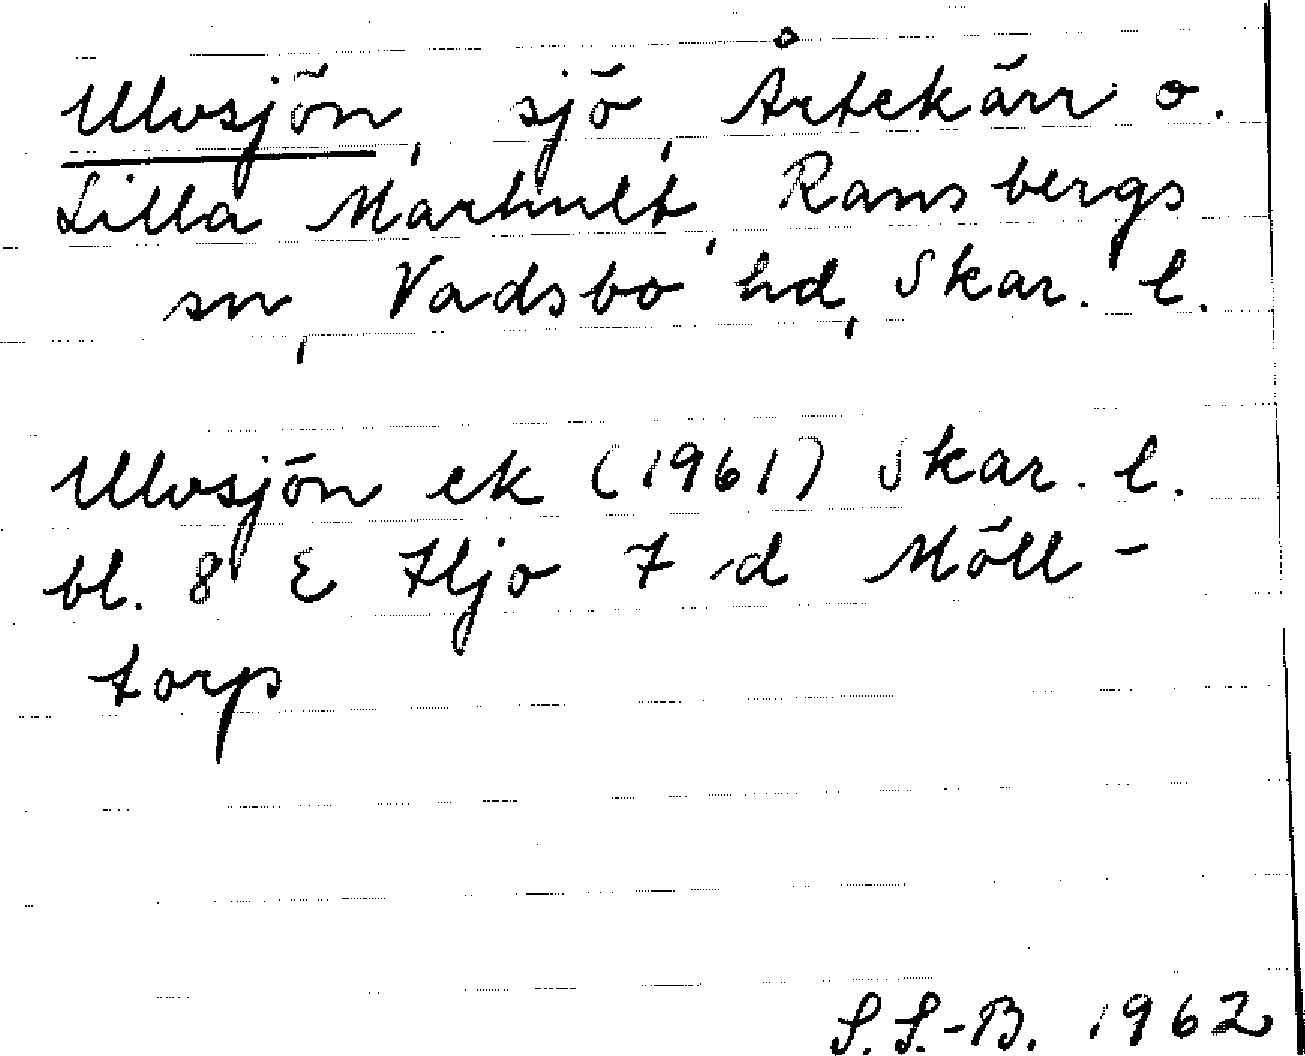 Ulvsjön, sjö, Årtekärr o.
Lilla Marhult, Ransbergs
sn, Vadsbo hd, Skar. l.
Ulvsjön ek (1961) Skar. l.
bl. 8 E Hjo 7 d Möll-
torp
S. S.-B. 1962